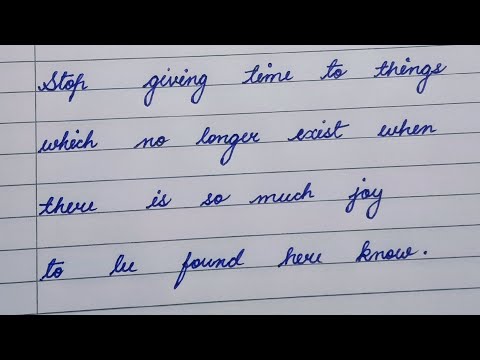 Stop giving time to things
which no longer exist when
there is so much joy
to be found here know.